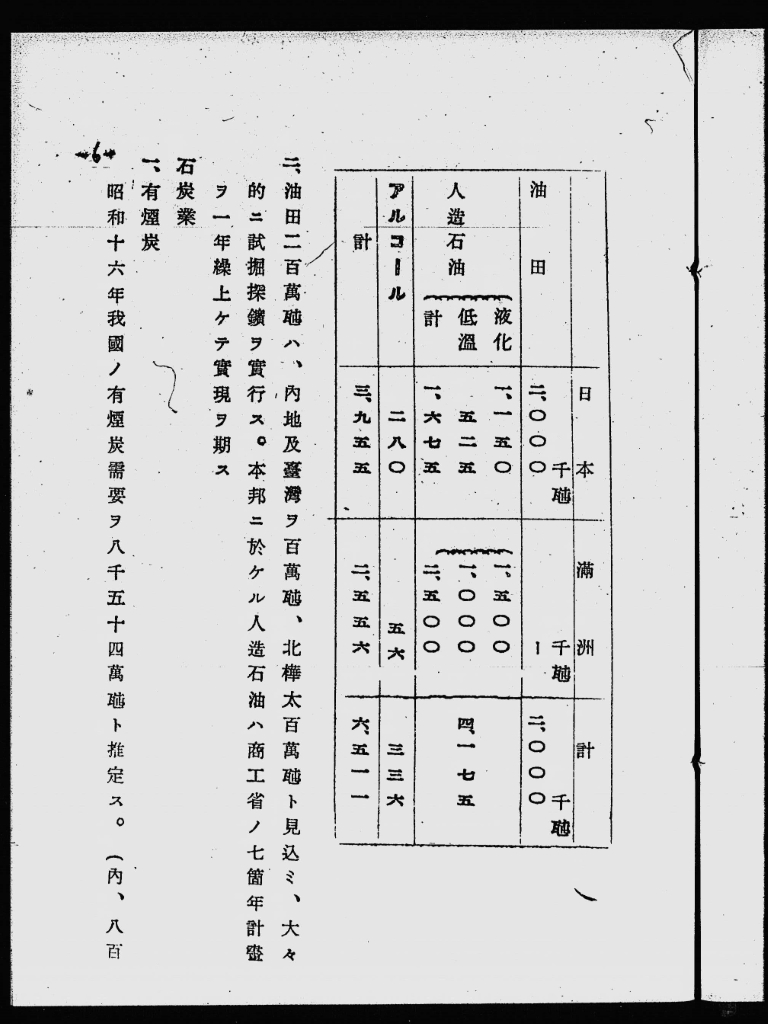 日本
滿洲
計
千瓲
千瓲
千瓲
油田
二、〇〇〇
ー
二、〇〇〇
人造石油
液化
一、一五〇
一、五〇〇
低溫
五二五
一、〇〇〇
計
一、六七五
二、五〇〇
四、一七五
アルコール
二八〇
五六
三三六
計
三、九五五
二、五五六
六、五一一
二、油田二百萬瓲ハ、內地及臺灣ヲ百萬瓲、北樺太百萬瓲ト見込ミ、大々
的ニ試掘探鑛ヲ實行ス。本邦ニ於ケル人造石油ハ商工省ノ七箇年計畫
ヲ一年繰上ケテ實現ヲ期ス
石炭業
一、有煙炭
昭和十六年我國ノ有煙炭需要ヲ八千五十四萬瓲ト推定ス。(內、八百
6